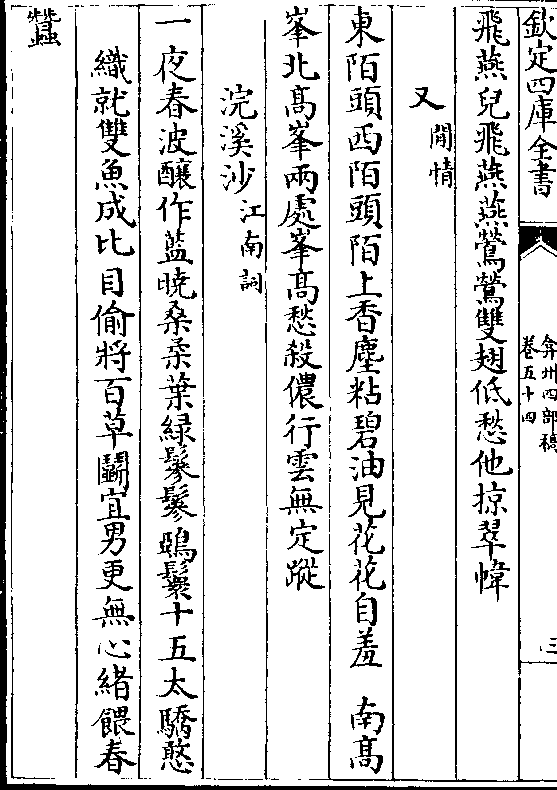 欽定四庫全書
弇州四部稿
卷五十四
三
飛燕兒飛燕燕鶯鶯雙翅低愁他掠翠幃
又閒情
東陌頭西陌頭陌上香塵粘碧油見花花自羞　南髙
峯北髙峯兩處峯髙愁殺儂行雲無定蹤
浣溪沙江南詞
一夜春波釀作藍曉桑柔葉緑鬖鬖鵶鬟十五太驕憨
織就雙魚成比目偷將百草鬬宜男更無心緒餵春
蠶